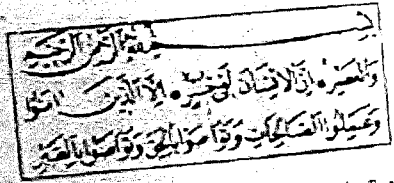 بسم الله الرحمن الرحيم
والعصر ان الانسان لفى خسر الا الذين امنوا
وعملوا الصالحات وتواصوا بالحق وتواصوا بالصبر